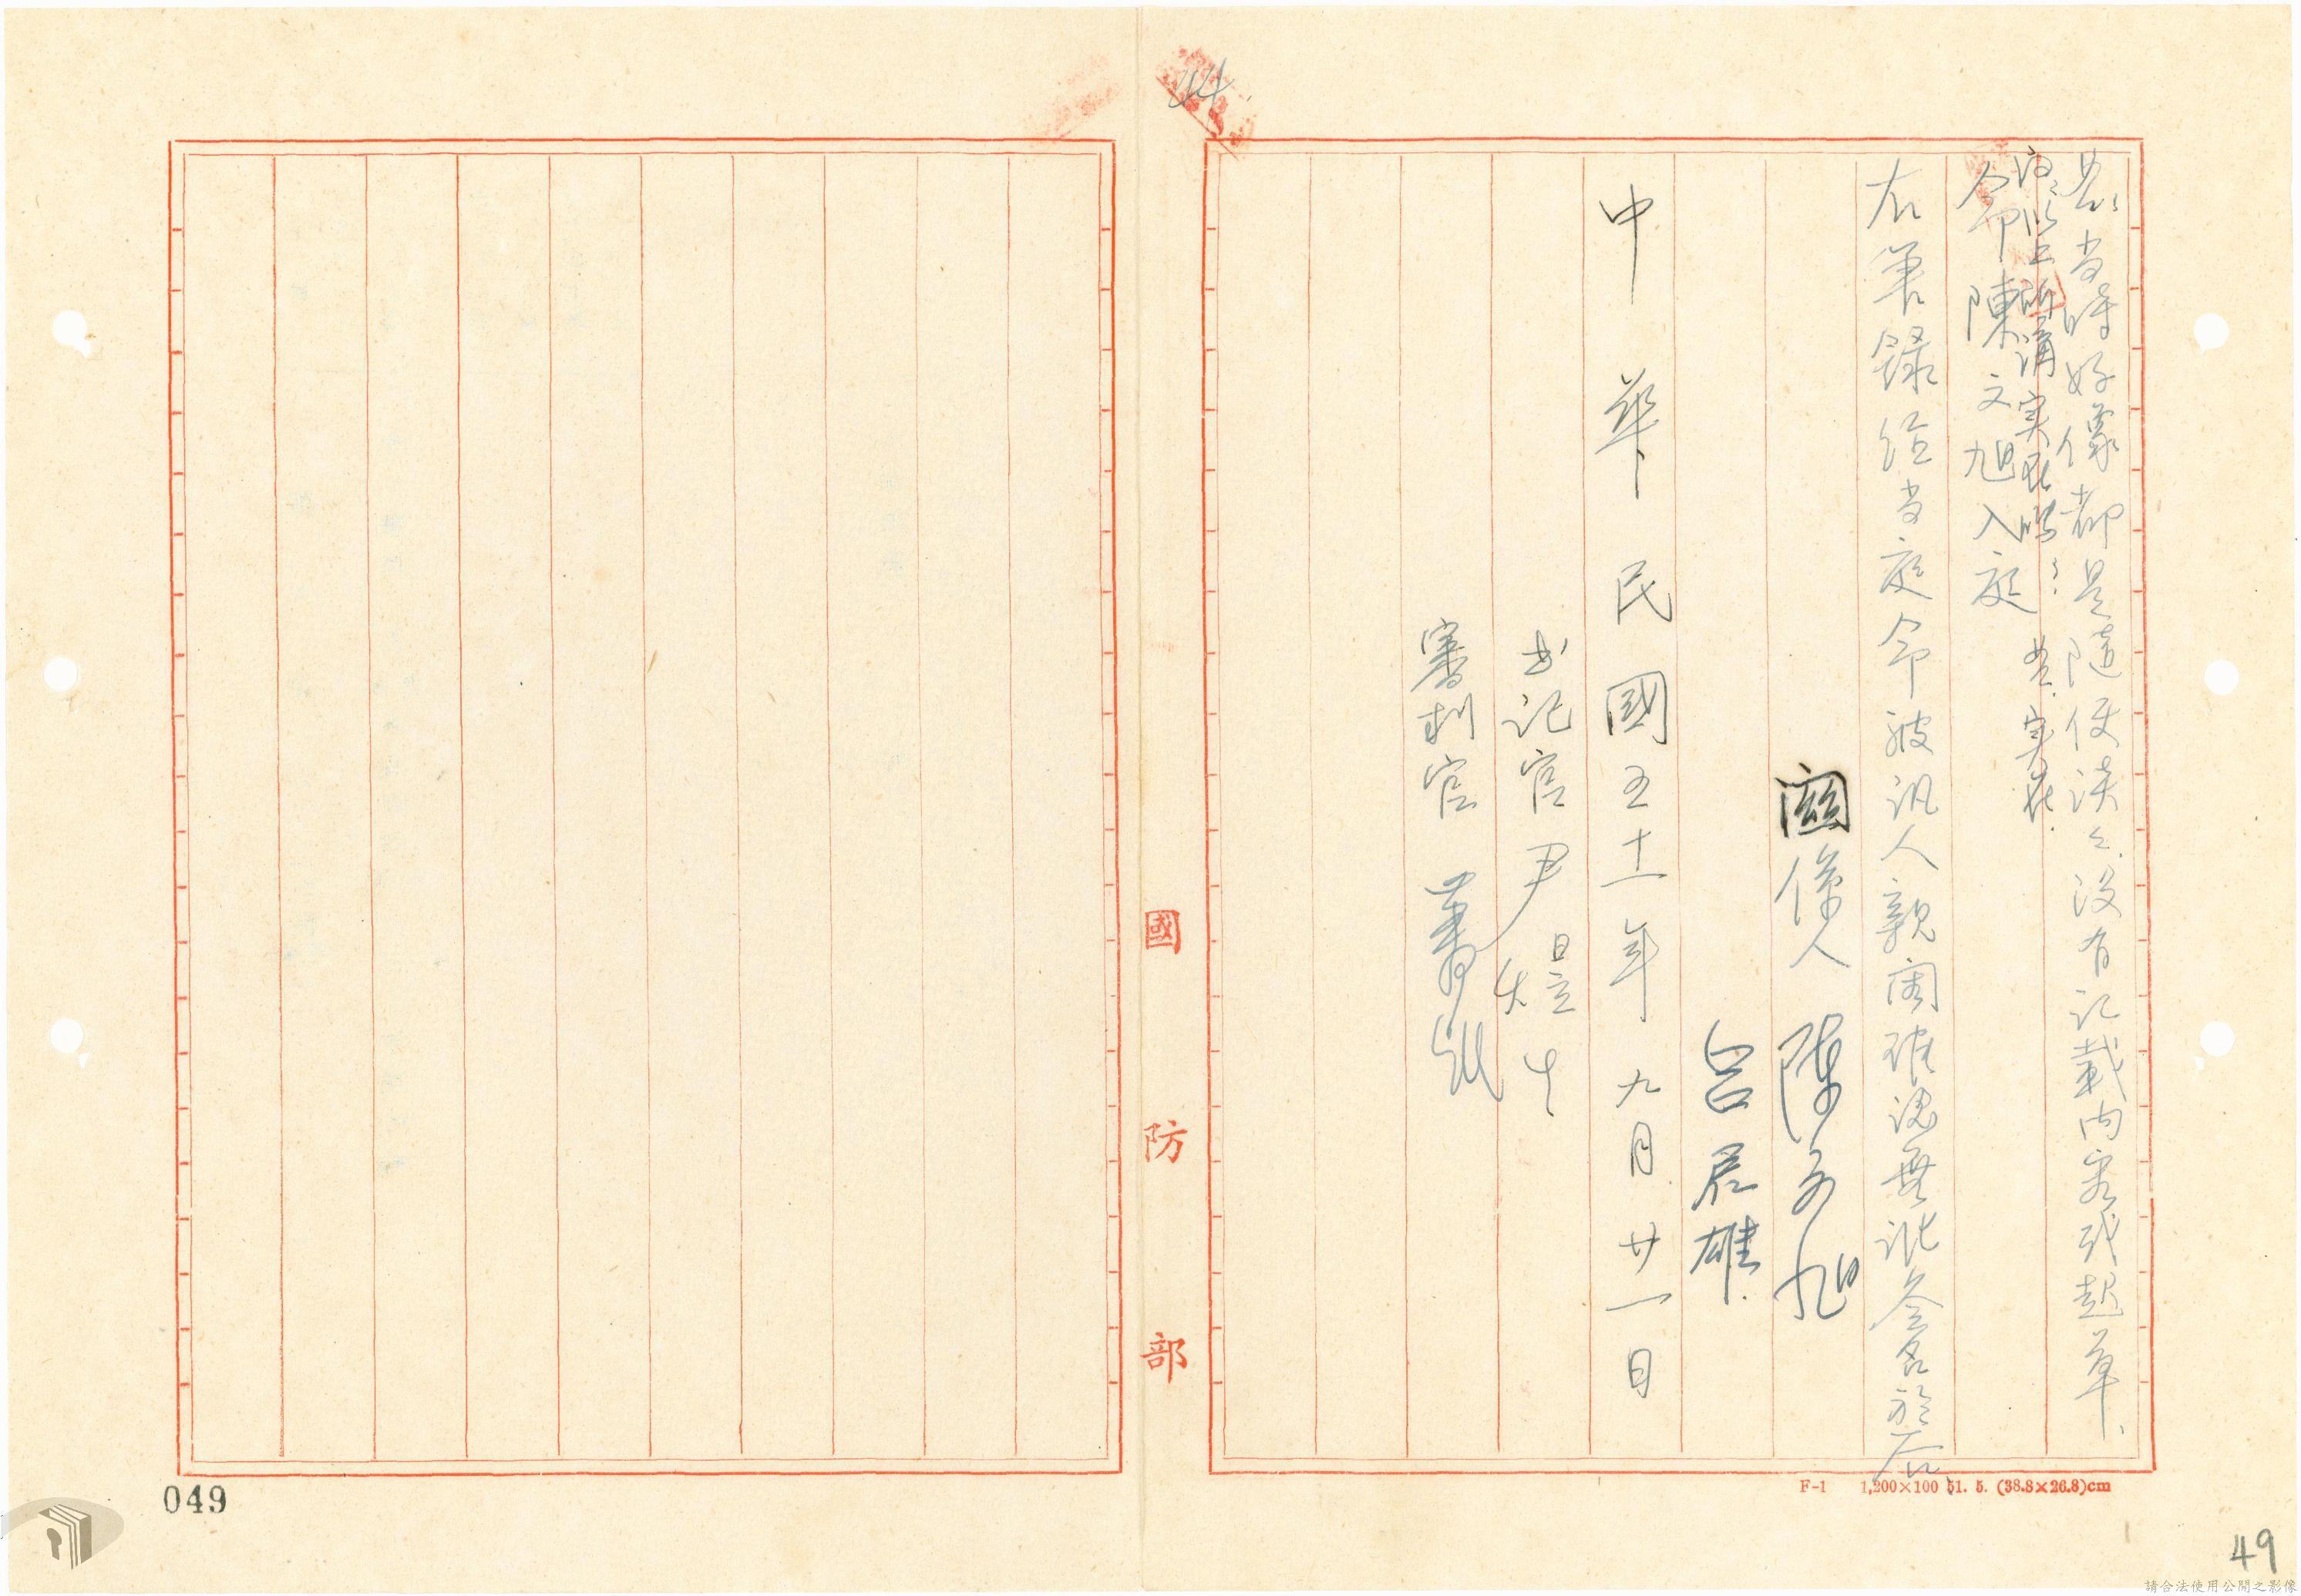 答:当時好像都是隨便談々.没有記載内容或起草.
问:以上所講実在嗎? 答.実在.
令陳文旭入庭
右筆錄经当庭令被讯人親閱確認無訛簽名於后
関係人 陳文旭
呂君雄
中華民國五十一年九月廿一日
书记官尹
審判官
44
國防部
F-1 1,200×100 51. 5. (38.8×26.8)cm
049
49
請合法使用公開之影像